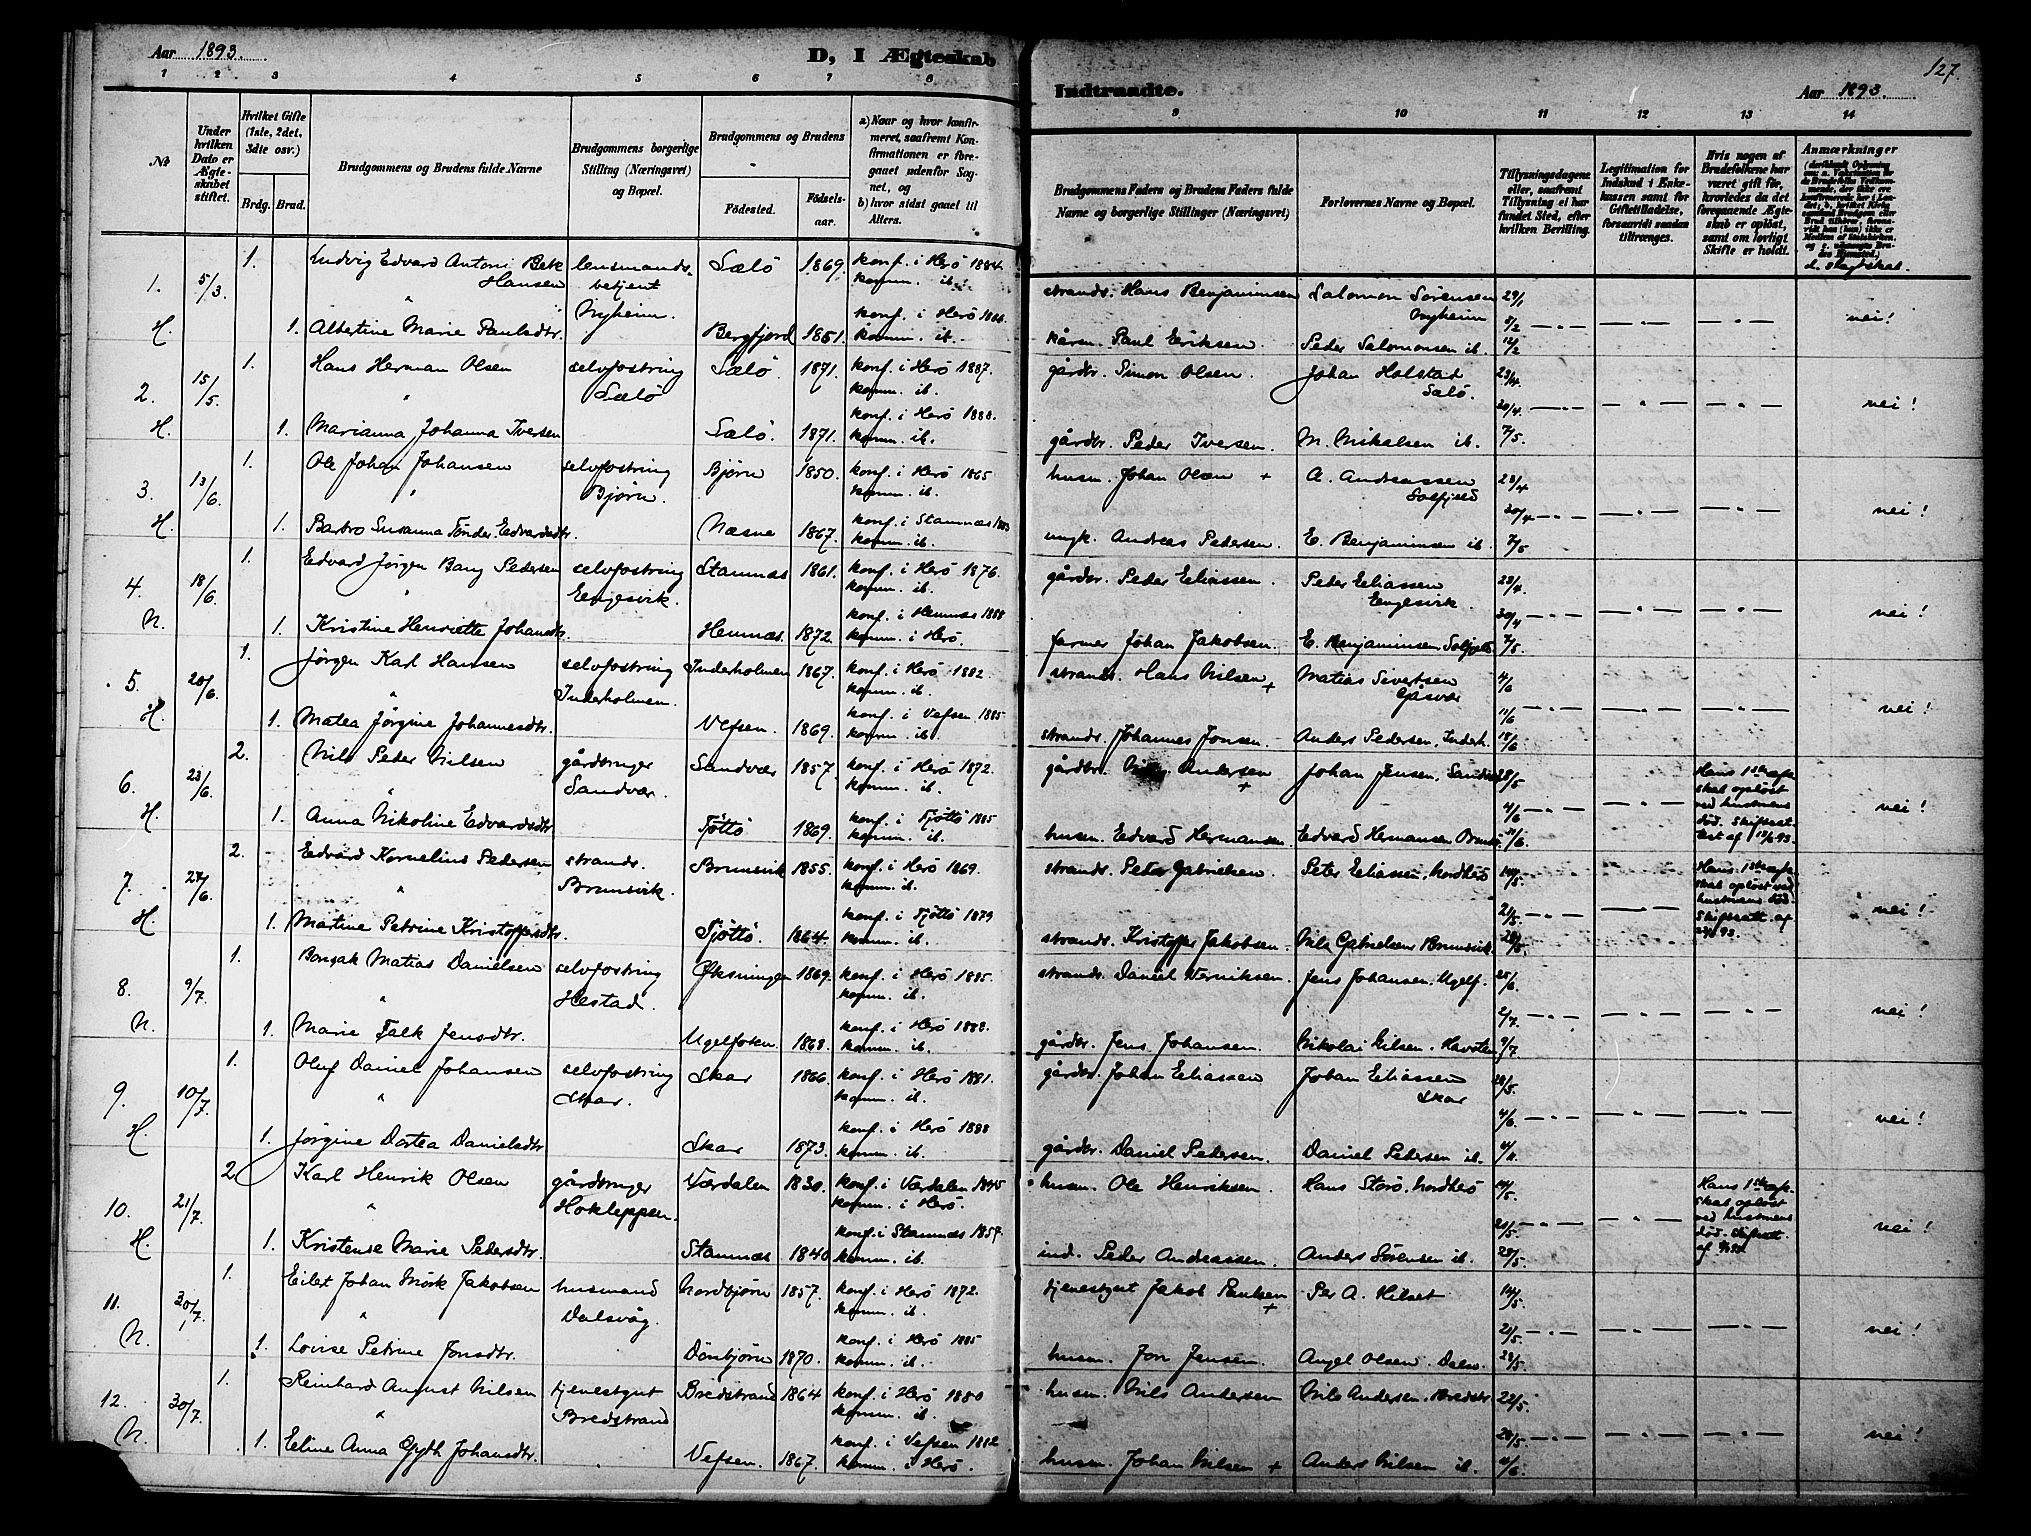 Aar 1893.
D, I Ægteskab
1 2 3 4 5 6 7 8
No
Under hvilken Dato er Ægteskabet stiftet.
Hvilket Gifte (1ste, 2det, 3die osv.)
Brdg. Brud.
Brudgommens og Brudens fulde Navne
Brudgommens borgerlige Stilling (Næringsvei) og Bopæl.
Brudgommens og Brudens
Fødested. Fødselsaar.
a) Naar og hvor konfirmeret, saafremt Konfirmationen er foregaaet udenfor Sognet, og
b) hvor sidst gaaet til Alters.
1. Ludvig Edvard Antoni Bek lensmands- Sælö 1869. konf. i Herö 1884.
1. 5/3 Hansen betjent komm. ib.
" Nyheim. konf. i Herö 1866
H. 1. Albertine Marie Paulsdtr. Bergfjord 1851. komm. ib.
1. Hans Herman Olsen selvfostring Sælö. 1871. konf. i Herö 1887.
2. 15/5 " Sælö komm. ib.
konf. i Herö 1888.
H. 1. Marianna Johanna Iversen Sælö. 1871. komm. ib.
1. Ole Johan Johansen selvfostring Bjørn 1850. konf. i Herö 1865
3. 13/6. " Bjørn. komm. ib.
H. 1. Barbro Susanna Tönder Edvardsdtr. Næsne 1867. konf. i Stamnæs 1883
komm. ib.
1. Edvard Jörgen Bang Pedersen selvfostring Stamnæs 1861. konf. i Herö 1876.
4. 18/6. " Engesvik. komm. ib.
konf. i Hemnæs 1888
N. 1. Kristine Henriette Johansdtr. Hemnæs. 1872. komm. i Herö.
1. Jörgen Karl Hansen selvfostring Inderholmen 1867. konf. i Herö 1882
5. 20/6. " Inderholmen. komm. ib.
H. 1. Matea Jörgine Johannesdtr. Vefsen. 1869. konf. i Vefsen 1885
komm. ib.
2. Nils Peder Nilsen gårdbruger Sandvær 1857. konf. i Herö 1872.
6. 23/6. " Sandvær. komm. ib.
H. 1. Anna Nikoline Edvardsdtr Tjöttö 1869. konf. i Tjöttö 1885
komm. ib.
2. Edvard Kornelius Pedersen strands. Brunsvik 1855. konf. i Herö 1869.
7. 24/6. " Brunsvik. komm. ib.
H. 1. Martine Petrine Kristoffersdtr. Tjöttö. 1864. konf. i Tjöttö 1879
komm. ib.
1. Bonsak Matias Danielsen selvfostring Öksningen 1869. konf. i Herö 1885.
8. 9/7. " Hestad. komm. ib.
N. 1. Marie Falk Jensdtr. Ugelfoten. 1868. konf. i Herö 1882.
komm. ib.
1. Oluf Daniel Johansen selvfostring Skar 1866. konf. i Herö 1881.
9. 10/7. " Skar. komm. ib.
H. 1. Jörgine Dortea Danielsdtr Skar 1873. konf. i Herö 1888
komm. ib.
2 Karl Henrik Olsen gårdbruger Værdalen 1830. konf. i Værdalen 1845
10. 21/7. " Hokleppen. komm. i Herö.
H. 1. Kristense Marie Pedersdtr. Stamnæs 1840. konf. i Stamnæs 1857.
komm. ib.
1. Eilet Johan Mörk Jakobsen husmand Nordbjörn 1857. konf. i Herö 1872.
11. 30/7 " Dalsvåg. komm. ib.
N. 1. Lovise Petrine Jonsdtr. Dönbjörn 1870. konf. i Herö 1885
komm. ib.
1. Reinhard August Nilsen tjenestgut Bredstrand 1864 konf. i Herö 1880
12. 30/7. " Bredstrand komm. ib.
N. 1. Eline Anna Gyth Johansdtr. Vefsen. 1867. konf. i Vefsen 1882
komm. i Herö.
127.
Indtraadte. Aar 1893.
9 10 11 12 13 14
Brudgommens Faders og Brudens Faders fulde Navne og borgerlige Stillinger (Næringsvei)
Forlovernes Navne og Bopæl.
Tillysningsdagene eller, saafremt Tillysning ei har fundet Sted, efter hvilken Bevilling.
Legitimation for Indskud i Enkekassen samt for Giftetilladelse, forsaavidt saadan tiltrænges.
Hvis nogen af Brudefolkene har været gift før, hvorledes da det foregaaende Ægteskab er opløst, samt om lovligt Skifte er holdt.
Anmærkninger
d. slægtskab.
strands. Hans Benjaminsen Salomon Sörensen 29/1
Nyheim 5/2 — " — — " — — " — nei!
kårm. Paul Eriksen. Peder Salomonsen ib. 12/2
gårdbr. Simon Olsen. Johan Holstad 23/4
Sælö. 30/4. — " — — " — — " — nei!
gårdbr. Peder Iversen. M. Mikalsen ib. 7/5.
husm. Johan Olsen + A. Andreassen 23/4
Solfjeld 30/4 — " — — " — — " — nei!
ungk. Andreas Pedersen. E. Benjaminsen ib. 7/5
gårdbr. Peder Eliassen. Peder Eliassen 23/4
Engesvik. 30/4 — " — — " — — " — nei!
farmer Johan Jakobsen. E. Benjaminsen Solfjeld 7/5
strands. Hans Nilsen + Matias Sivertsen 4/6
Gåsvær 11/6 — " — — " — — " — nei!
strands. Johannes Jonsen. Anders Pedersen, Inderh. 18/6
gårdbr. Andersen + Johan Jensen, Sandv. 28/5 Hans 1ste ægte-
4/6 — " — — " — skab oplöst ved hustruens nei!
husm. Edvard Hermansen Edvard Hermansen 11/6. död. Skifteattest af
strands. Peder Gabrielsen. Peter Eliassen, Nordherö 14/5. Hans 1ste ægte-
21/5. — " — — " — skab oplöst ved hustruens död. nei!
strands. Kristoffer Jakobsen. Nils Gabrielsen Brunsvik 28/5. Skifteatt. af
strands. Daniel Henriksen. Jens Johansen, Ugelf. 25/6.
2/7. — " — — " — — " — nei!
gårdbr. Jens Johansen. Nikolai Nilsen, Havsten 9/7
gårdbr. Johan Eliassen Johan Eliassen 28/5.
Skar 4/6. — " — — " — — " — nei!
gårdbr. Daniel Pedersen. Daniel Pedersen ib.
husm. Ole Henriksen. Hans Storö, Nordherö 14/5. Hans 1ste ægte-
21/5. — " — — " — skab oplöst ved hustruens nei!
ind. Peder Andreassen. Anders Sörensen ib. 28/5. död. Skifteatt. af
tjenestgut Jakob Paulsen + Per A. Hilset 14/5.
21/5. — " — — " — — " — nei!
husm. Jon Jensen. Angel Olsen. Dalsv. 28/5.
husm. Nils Andersen Nils Andersen, Bredstr. 22/5.
28/5. — " — — " — — " — nei!
husm. Johan Nilsen + Anders Nilsen ib. 11/6.